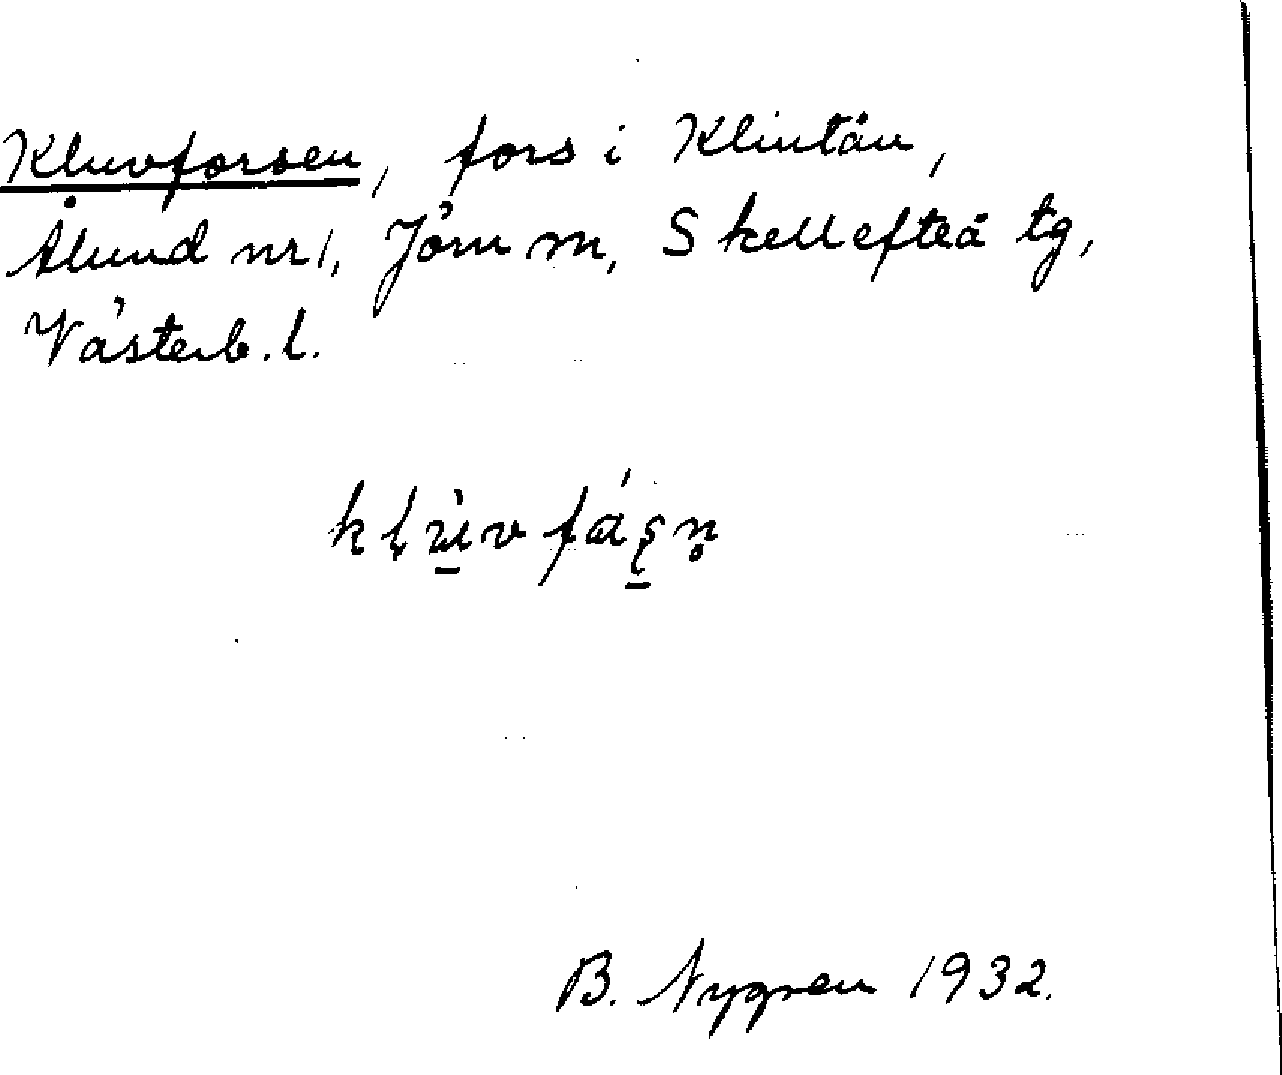 Kluvforsen, fors i Klintån,
Ålund nr 1, Jörn sn, Skellefteå tg,
Västerb. l.
B. Nygren 1932.